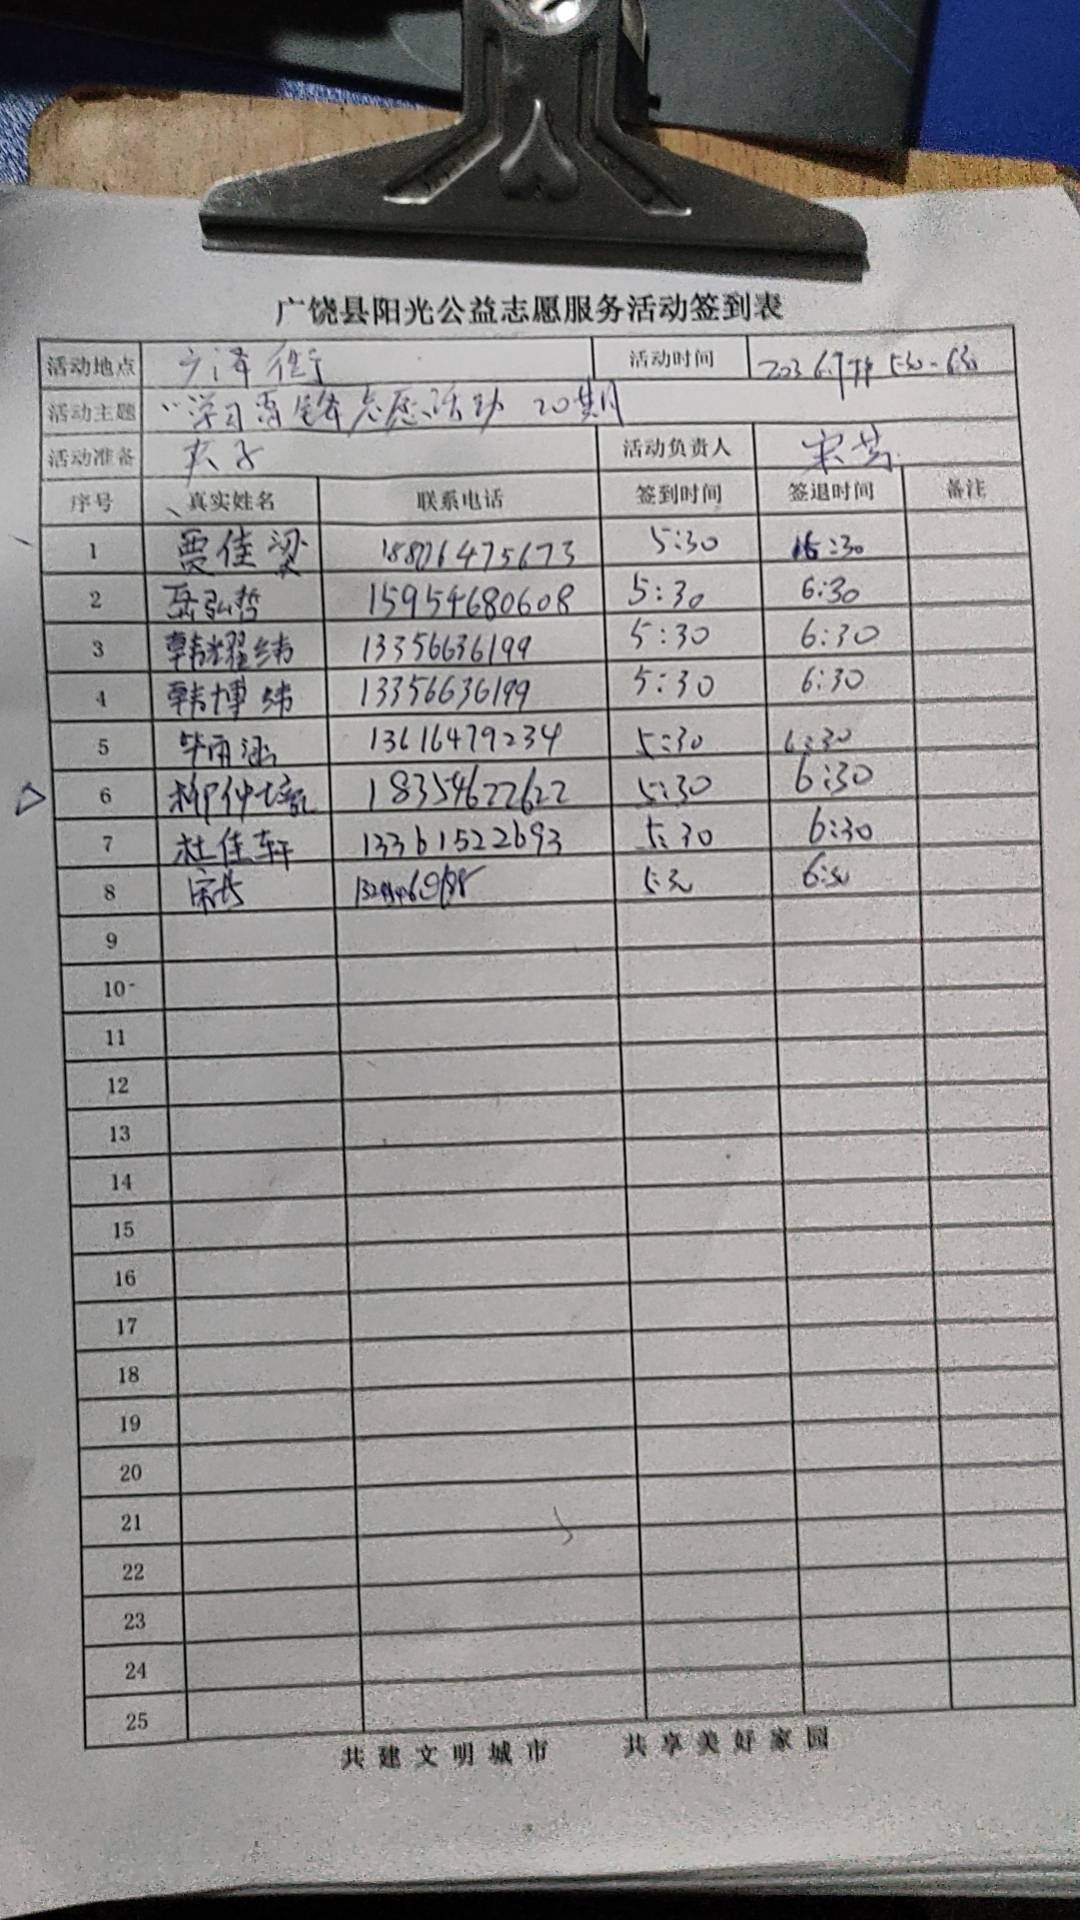 广饶县阳光公益志愿服务活动签到表
活动地点 广泽街 活动时间 5:30-6:30
活动主题 "学习雷锋志愿活动 20期
活动准备 夹子 活动负责人
序号 真实姓名 联系电话 签到时间 签退时间 备注
1 贾佳梁 18876475673 5:30 6:30
2 岳弘哲 15954680608 5:30 6:30
3 韩耀纬 13356636199 5:30 6:30
4 韩博纬 13356636199 5:30 6:30
5 13616479234 5:30 6:30
6 18354622622 5:30 6:30
7 杜佳轩 13361522693 5:30 6:30
8 5:30 6:30
9
10
11
12
13
14
15
16
17
18
19
20
21
22
23
24
25
共建文明城市 共享美好家园